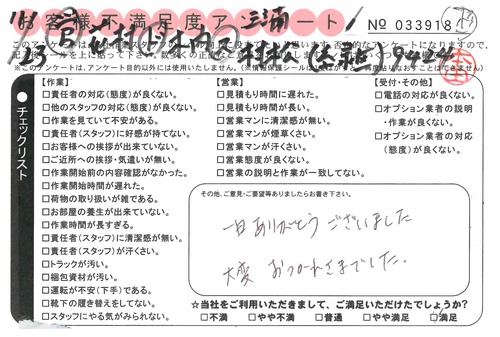 お客様不満足度アンケート
No 033918
このアンケートは
※このアンケートは、アンケート目的以外には使用いたしません。
9424
チェックリスト
【作業】
□責任者の対応(態度)が良くない。
□他のスタッフの対応(態度)が良くない。
□作業を見ていて不安がある。
□責任者(スタッフ)に好感が持てない。
□お客様への挨拶が出来ていない。
□ご近所への挨拶・気遣いが無い。
□作業開始前の内容確認がなかった。
□作業開始時間が遅れた。
□荷物の取り扱いが雑である。
□お部屋の養生が出来ていない。
□作業時間が長すぎる。
□責任者(スタッフ)に清潔感が無い。
□責任者(スタッフ)が汗くさい。
□トラックが汚い。
□梱包資材が汚い。
□運転が不安(下手)である。
□靴下の履き替えをしてない。
□スタッフにやる気がみられない。
【営業】
□見積もり時間に遅れた。
□見積もり時間が長い。
□営業マンに清潔感が無い。
□営業マンが煙草くさい。
□営業マンが汗くさい。
□営業態度が良くない。
□営業の説明と作業が一致してない。
【受付・その他】
□電話の対応が良くない。
□オプション業者の説明
・作業が良くない。
□オプション業者の対応
(態度)が良くない。
その他、ご意見・ご要望等ありましたらお書き下さい。
一日ありがとうございました
大変 おつかれさまでした.
☆当社をご利用いただきまして、ご満足いただけたでしょうか?
□不満 □やや不満 □普通 □やや満足 □満足